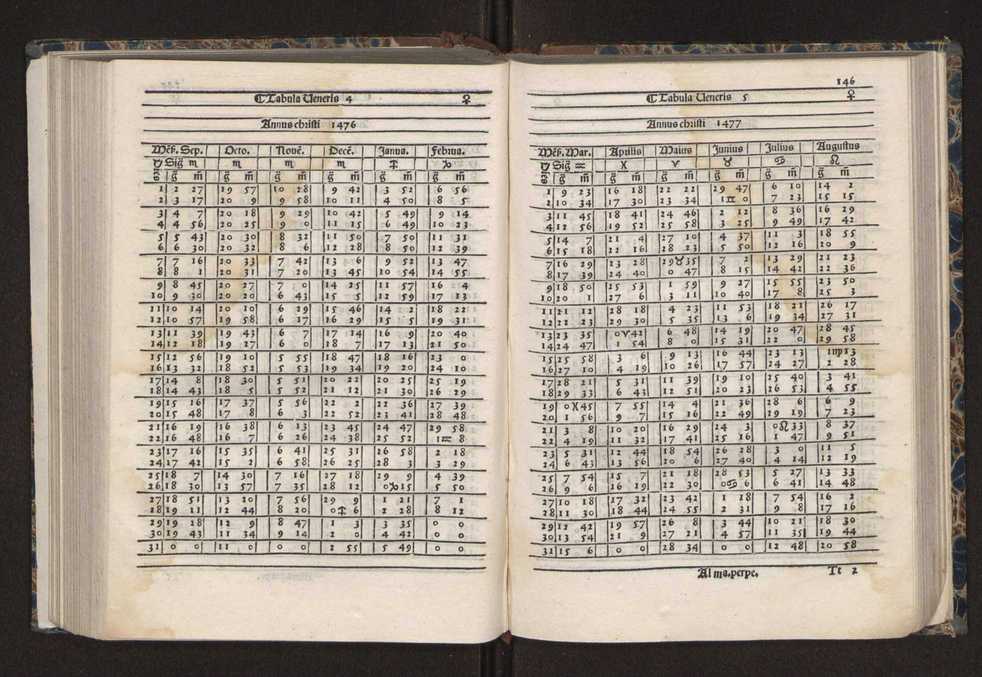 ¶Tabula Veneris 4 ♀
Annus christi 1476
Mēs. Sep. Octo. Nouē. Decē. Janua. Februa.
Sig ♏ ♏ ♏ ♏ ♐ ♑
g m̄ g m̄ g m̄ g m̄ g m̄ g m̄
1 2 27 19 57 10 28 9 42 3 52 6 56
2 3 17 20 9 9 58 10 11 4 50 8 5
3 4 7 20 18 9 29 10 42 5 49 9 14
4 4 56 20 25 9 0 11 15 6 49 10 23
5 5 43 20 30 8 32 11 50 7 50 11 31
6 6 30 20 32 8 6 12 28 8 50 12 39
7 7 16 20 33 7 42 13 6 9 52 13 47
8 8 1 20 31 7 20 13 45 10 54 14 55
9 8 45 20 27 7 0 14 25 11 57 16 4
10 9 30 20 20 6 43 15 5 12 59 17 13
11 10 14 20 10 6 29 15 46 14 2 18 22
12 10 57 19 58 6 17 16 29 15 5 19 31
13 11 39 19 43 6 7 17 14 16 9 20 40
14 12 18 19 27 6 0 18 7 17 13 21 50
15 12 56 19 10 5 55 18 47 18 16 23 0
16 13 32 18 52 5 53 19 34 19 20 24 10
17 14 8 18 30 5 51 20 22 20 25 25 19
18 14 43 18 5 5 52 21 12 21 30 26 29
19 15 16 17 37 5 56 22 2 22 36 27 39
20 15 48 17 8 6 3 22 52 23 41 28 48
21 16 19 16 38 6 13 23 45 24 47 29 58
22 16 48 16 7 6 26 24 38 25 52 1♒ 8
23 17 16 15 35 6 41 25 31 26 58 2 18
24 17 42 15 2 6 58 26 25 28 3 3 29
25 18 7 14 30 7 16 27 18 29 9 4 39
26 18 30 13 57 7 35 28 12 0♑15 5 50
27 18 51 13 20 7 56 29 9 1 21 7 1
28 19 11 12 44 8 20 0♐6 2 28 8 12
29 19 28 12 9 8 47 1 3 3 35 0 0
30 19 43 11 34 9 14 2 0 4 42 0 0
31 0 0 11 0 0 0 2 55 5 49 0 0
146
¶Tabula Veneris 5 ♀
Annus christi 1477
Mēs. Mar. Aprilis Maius Junius Julius Augustus
Sig ♒ ♓ ♈ ♉ ♋ ♌
g m̄ g m̄ g m̄ g m̄ g m̄ g m̄
1 9 23 16 18 22 22 29 47 6 10 14 2
2 10 34 17 30 23 34 1♊0 7 23 15 15
3 11 45 18 41 24 46 2 12 8 36 16 29
4 12 56 19 52 25 58 3 25 9 49 17 42
5 14 7 21 4 27 10 4 37 11 3 18 55
6 15 18 22 16 28 23 5 50 12 16 20 9
7 16 29 13 28 29♉35 7 2 13 29 21 23
8 17 39 24 40 0 47 8 15 14 42 22 36
9 18 50 25 53 1 59 9 27 15 55 23 50
10 20 1 27 6 3 11 10 40 17 8 25 3
11 21 12 28 18 4 23 11 53 18 21 26 17
12 22 23 29 30 5 35 13 6 19 34 27 31
13 23 35 0♈42 6 48 14 19 20 47 28 45
14 24 47 1 54 8 0 15 31 22 0 29 58
15 25 58 3 6 9 13 16 44 23 13 1♍13
16 27 10 4 19 10 26 17 57 24 27 2 28
17 28 21 5 31 11 39 19 10 25 40 3 41
18 29 33 6 43 12 51 20 23 26 53 4 55
19 0♓45 7 55 14 4 21 36 28 6 6 9
20 1 56 9 7 15 16 22 49 29 19 7 23
21 3 8 10 20 16 29 24 3 0♌33 8 37
22 4 19 11 32 17 41 25 16 1 47 9 51
23 5 31 12 44 18 54 26 28 3 0 11 5
24 6 43 13 56 20 6 27 40 4 14 12 19
25 7 54 15 7 21 18 28 53 5 27 13 33
26 9 6 16 19 22 30 0♋6 6 41 14 48
27 10 18 17 32 23 42 1 18 7 54 16 2
28 11 30 18 44 24 55 2 31 9 8 17 16
29 12 42 19 57 26 8 3 44 10 21 18 30
30 13 54 21 9 27 21 4 57 11 35 19 44
31 15 6 0 0 28 34 0 0 12 48 20 58
Al ma.perpe. Tt 2